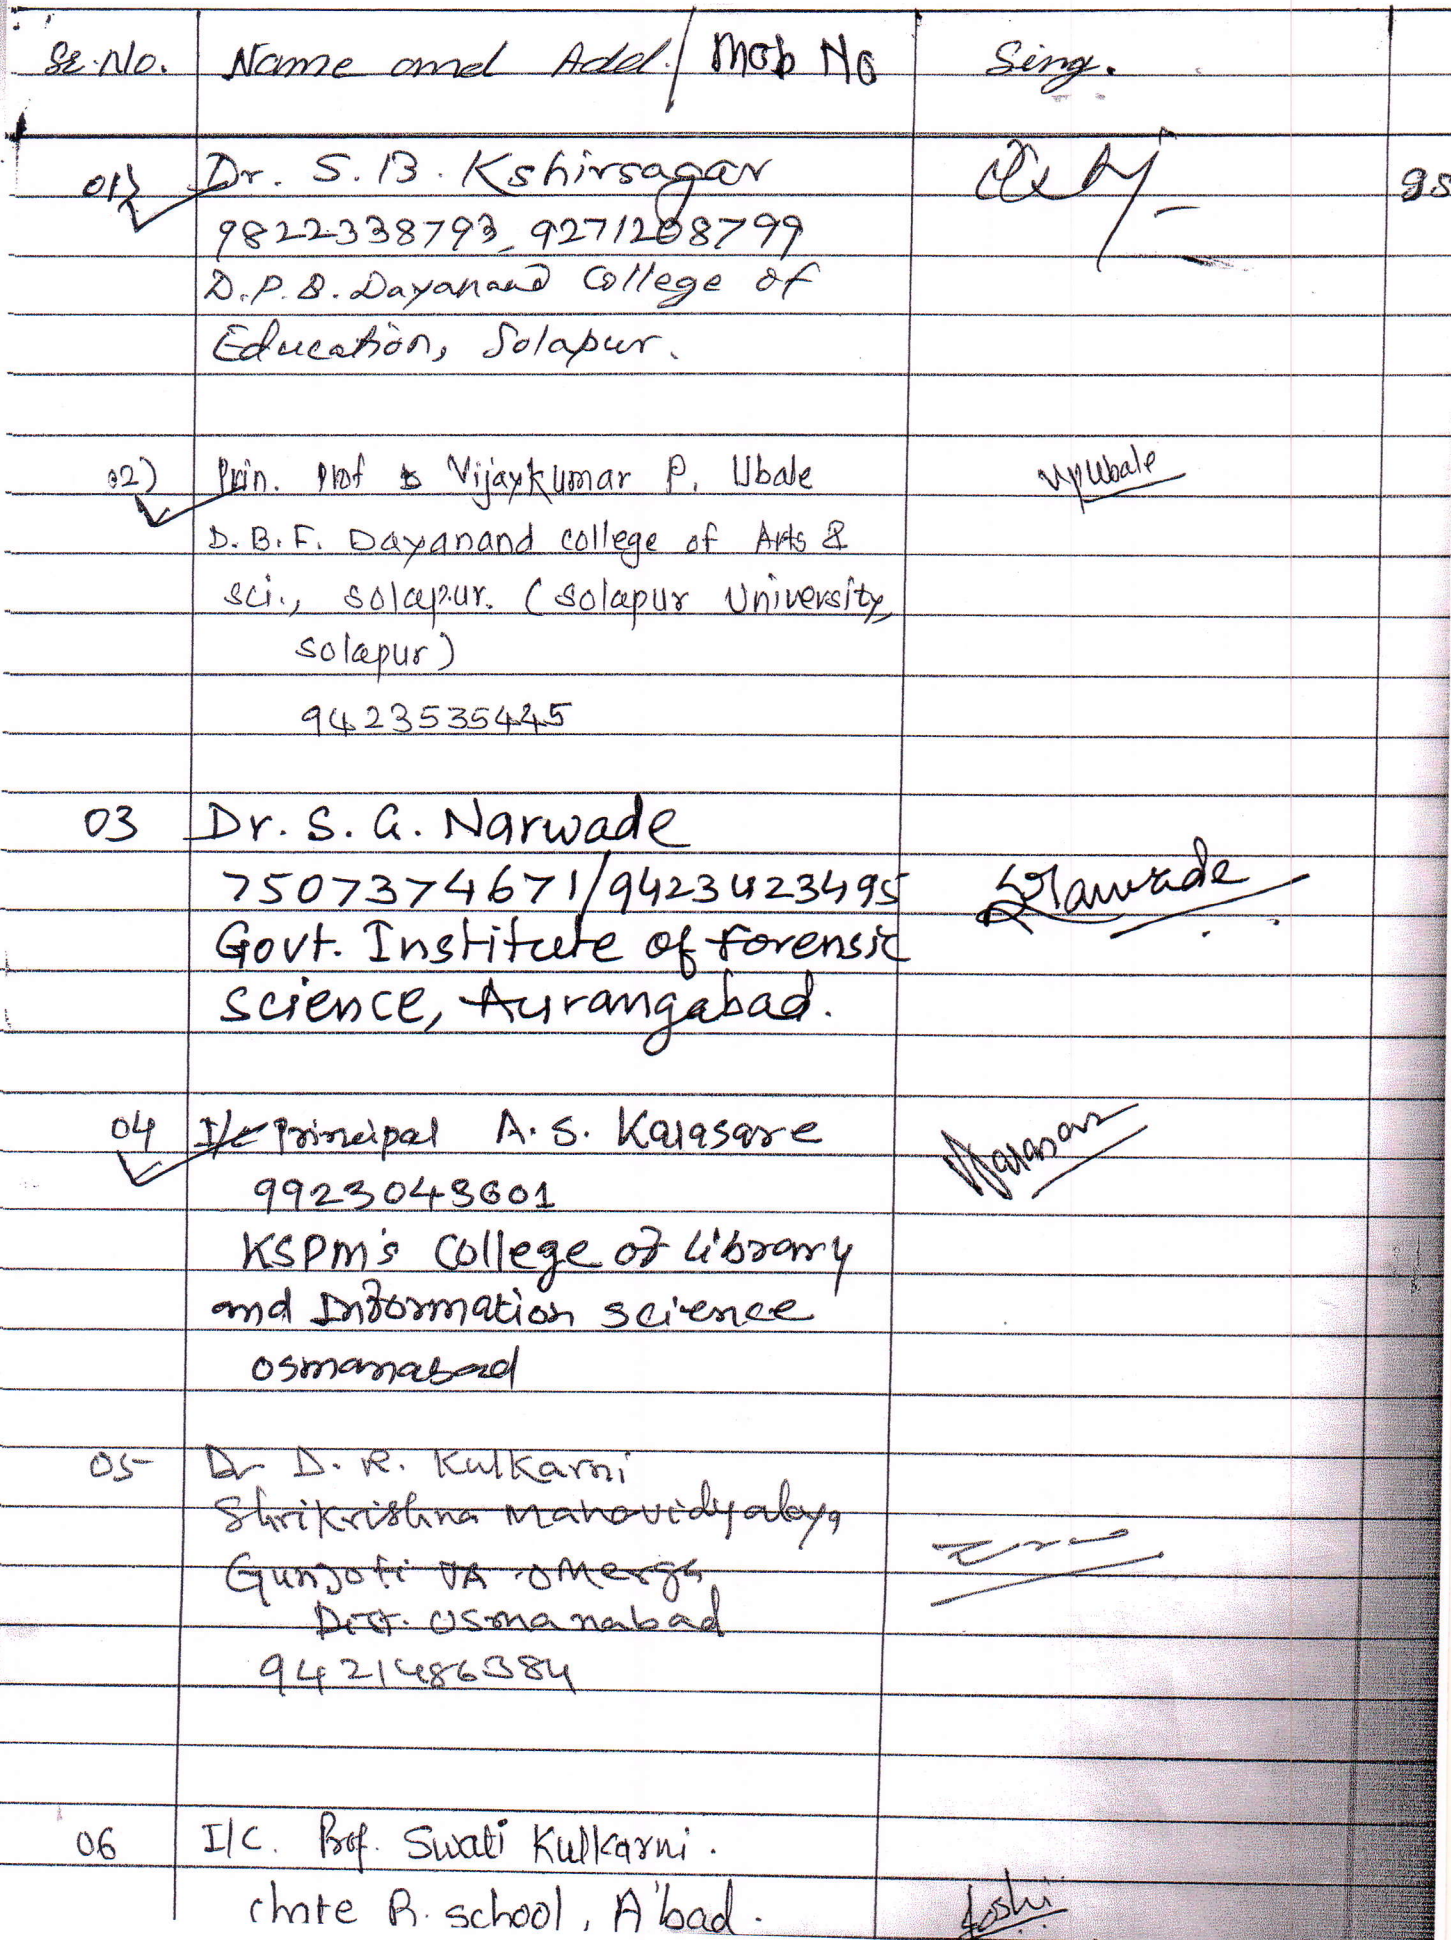 Sr. No. Name and Add. / Mob No Sing.
01) Dr. S. B. Kshirsagar
9822338793, 9271208799
D.P.B. Dayanand College of
Education, Solapur.
02) Prin. Prof Vijaykumar P. Ubale VpUbale
D.B.F. Dayanand college of Arts &
sci., solapur. (Solapur University,
solapur)
9423535445
03 Dr. S. G. Narwade
7507374671/9423423495 Narwade
Govt. Institute of Forensic
Science, Aurangabad.
04 I/c Principal A. S. Kalasare
9923043601
KSPM's College of Library
and Information science
osmanabad
05 Dr D. R. Kulkarni
Shrikrishna Mahavidyalaya
Gunjoti TA Omerga
Dist. Osmanabad
9421486384
06 I/C. Prof. Swati Kulkarni.
R. school, A'bad. Joshi